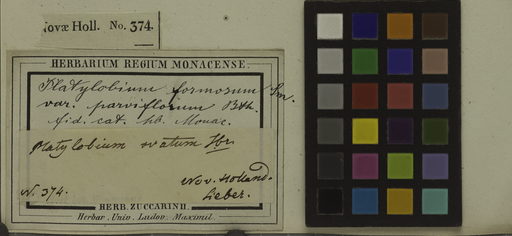 ovæ Holl. No. 374.
HERBARIUM REGIUM MONACENSE.
Platylobium formosum Sm.
var. parviflorum Bth.
fid. cat. hb. Monac.
Platylobium ovatum Hbr.
Nov. Holland.
N. 374. Sieber.
HERB. ZUCCARINII.
Herbar. Univ. Ludov. Maximil.